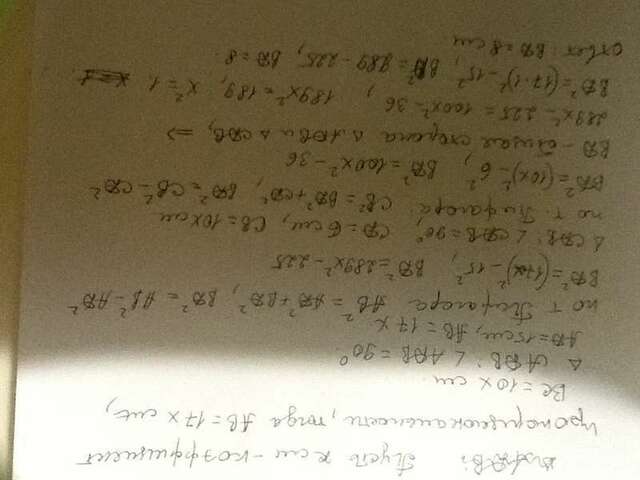 Пусть x см - коэффициент
пропорциональности, тогда AB = 17x см,
BC = 10x см.
△ ADB: ∠ ADB = 90°
AD = 15 см, AB = 17x
по т. Пифагора AB² = AD² + BD², BD² = AB² - AD²
BD² = (17x)² - 15², BD² = 289x² - 225
△ CDB: ∠ CDB = 90°, CD = 6 см, CB = 10x см
по т. Пифагора: CB² = BD² + CD², BD² = CB² - CD²
BD² = (10x)² - 6², BD² = 100x² - 36
BD - общая сторона △ ADB и △ CDB, ⇒
289x² - 225 = 100x² - 36, 189x² = 189, x² = 1,
BD² = (17·1)² - 15², BD² = 289 - 225, BD = 8.
Ответ: BD = 8 см